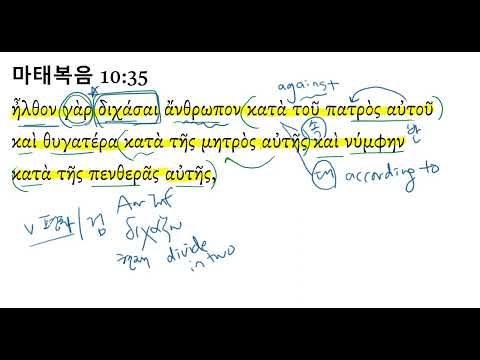 마태복음 10:35
against
ἦλθον γὰρ διχάσαι ἄνθρωπον κατὰ τοῦ πατρὸς αὐτοῦ
καὶ θυγατέρα κατὰ τῆς μητρὸς αὐτῆς καὶ νύμφην
κατὰ τῆς πενθερᾶς αὐτῆς,
according to
διχάζω
divide
in two